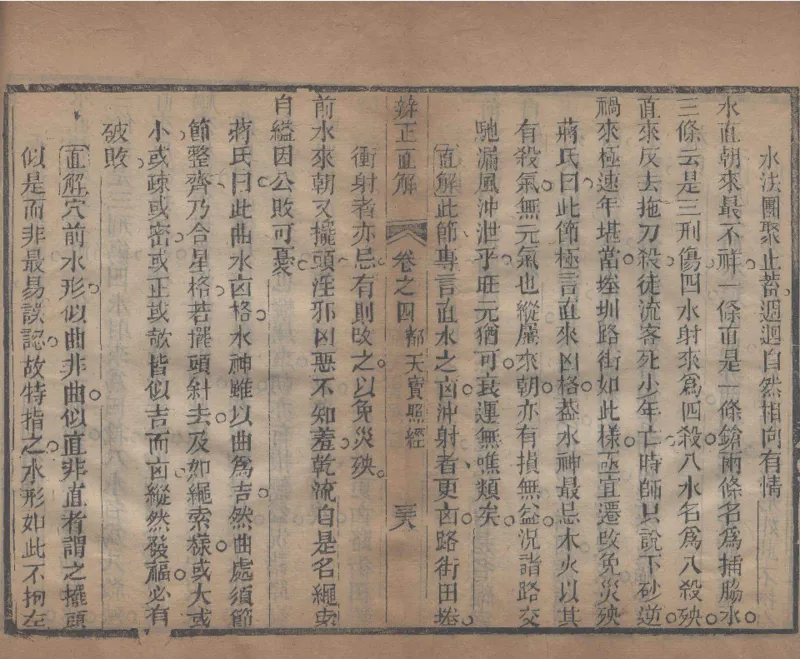 水法團聚止蓄週迴自然相向有情
水直朝來最不祥一條直是一條鎗兩條名為插脇水
三條云是三刑傷四水射來為四殺八水名為八殺殃
直來反去拖刀殺徒流客死少年亡時師只說下砂逆
禍來極速年堪當埄圳路街如此樣亟宜遷改免災殃
蔣氏曰此節極言直來凶格葢水神最忌木火以其
有殺氣無元氣也縱屬來朝亦有損無益況諸路交
馳漏風沖泄乎旺元猶可衰運無噍類矣
直解此節專言直水之凶沖射者更凶路街田埄
辨正直解 卷之四 都天寶照經 三十八
衝射者亦忌有則改之以免災殃
前水來朝又擺頭淫邪凶惡不知羞乾流自是名繩索
自縊因公敗可憂
蔣氏曰此曲水凶格水神雖以曲為吉然曲處須節
節整齊乃合星格若擺頭斜去及如繩索樣或大或
小或疎或密或正或欹皆似吉而凶縱然發福必有
破敗
直解穴前水形似曲非曲似直非直者謂之擺頭
似是而非最易誤認故特指之水形如此不拘左